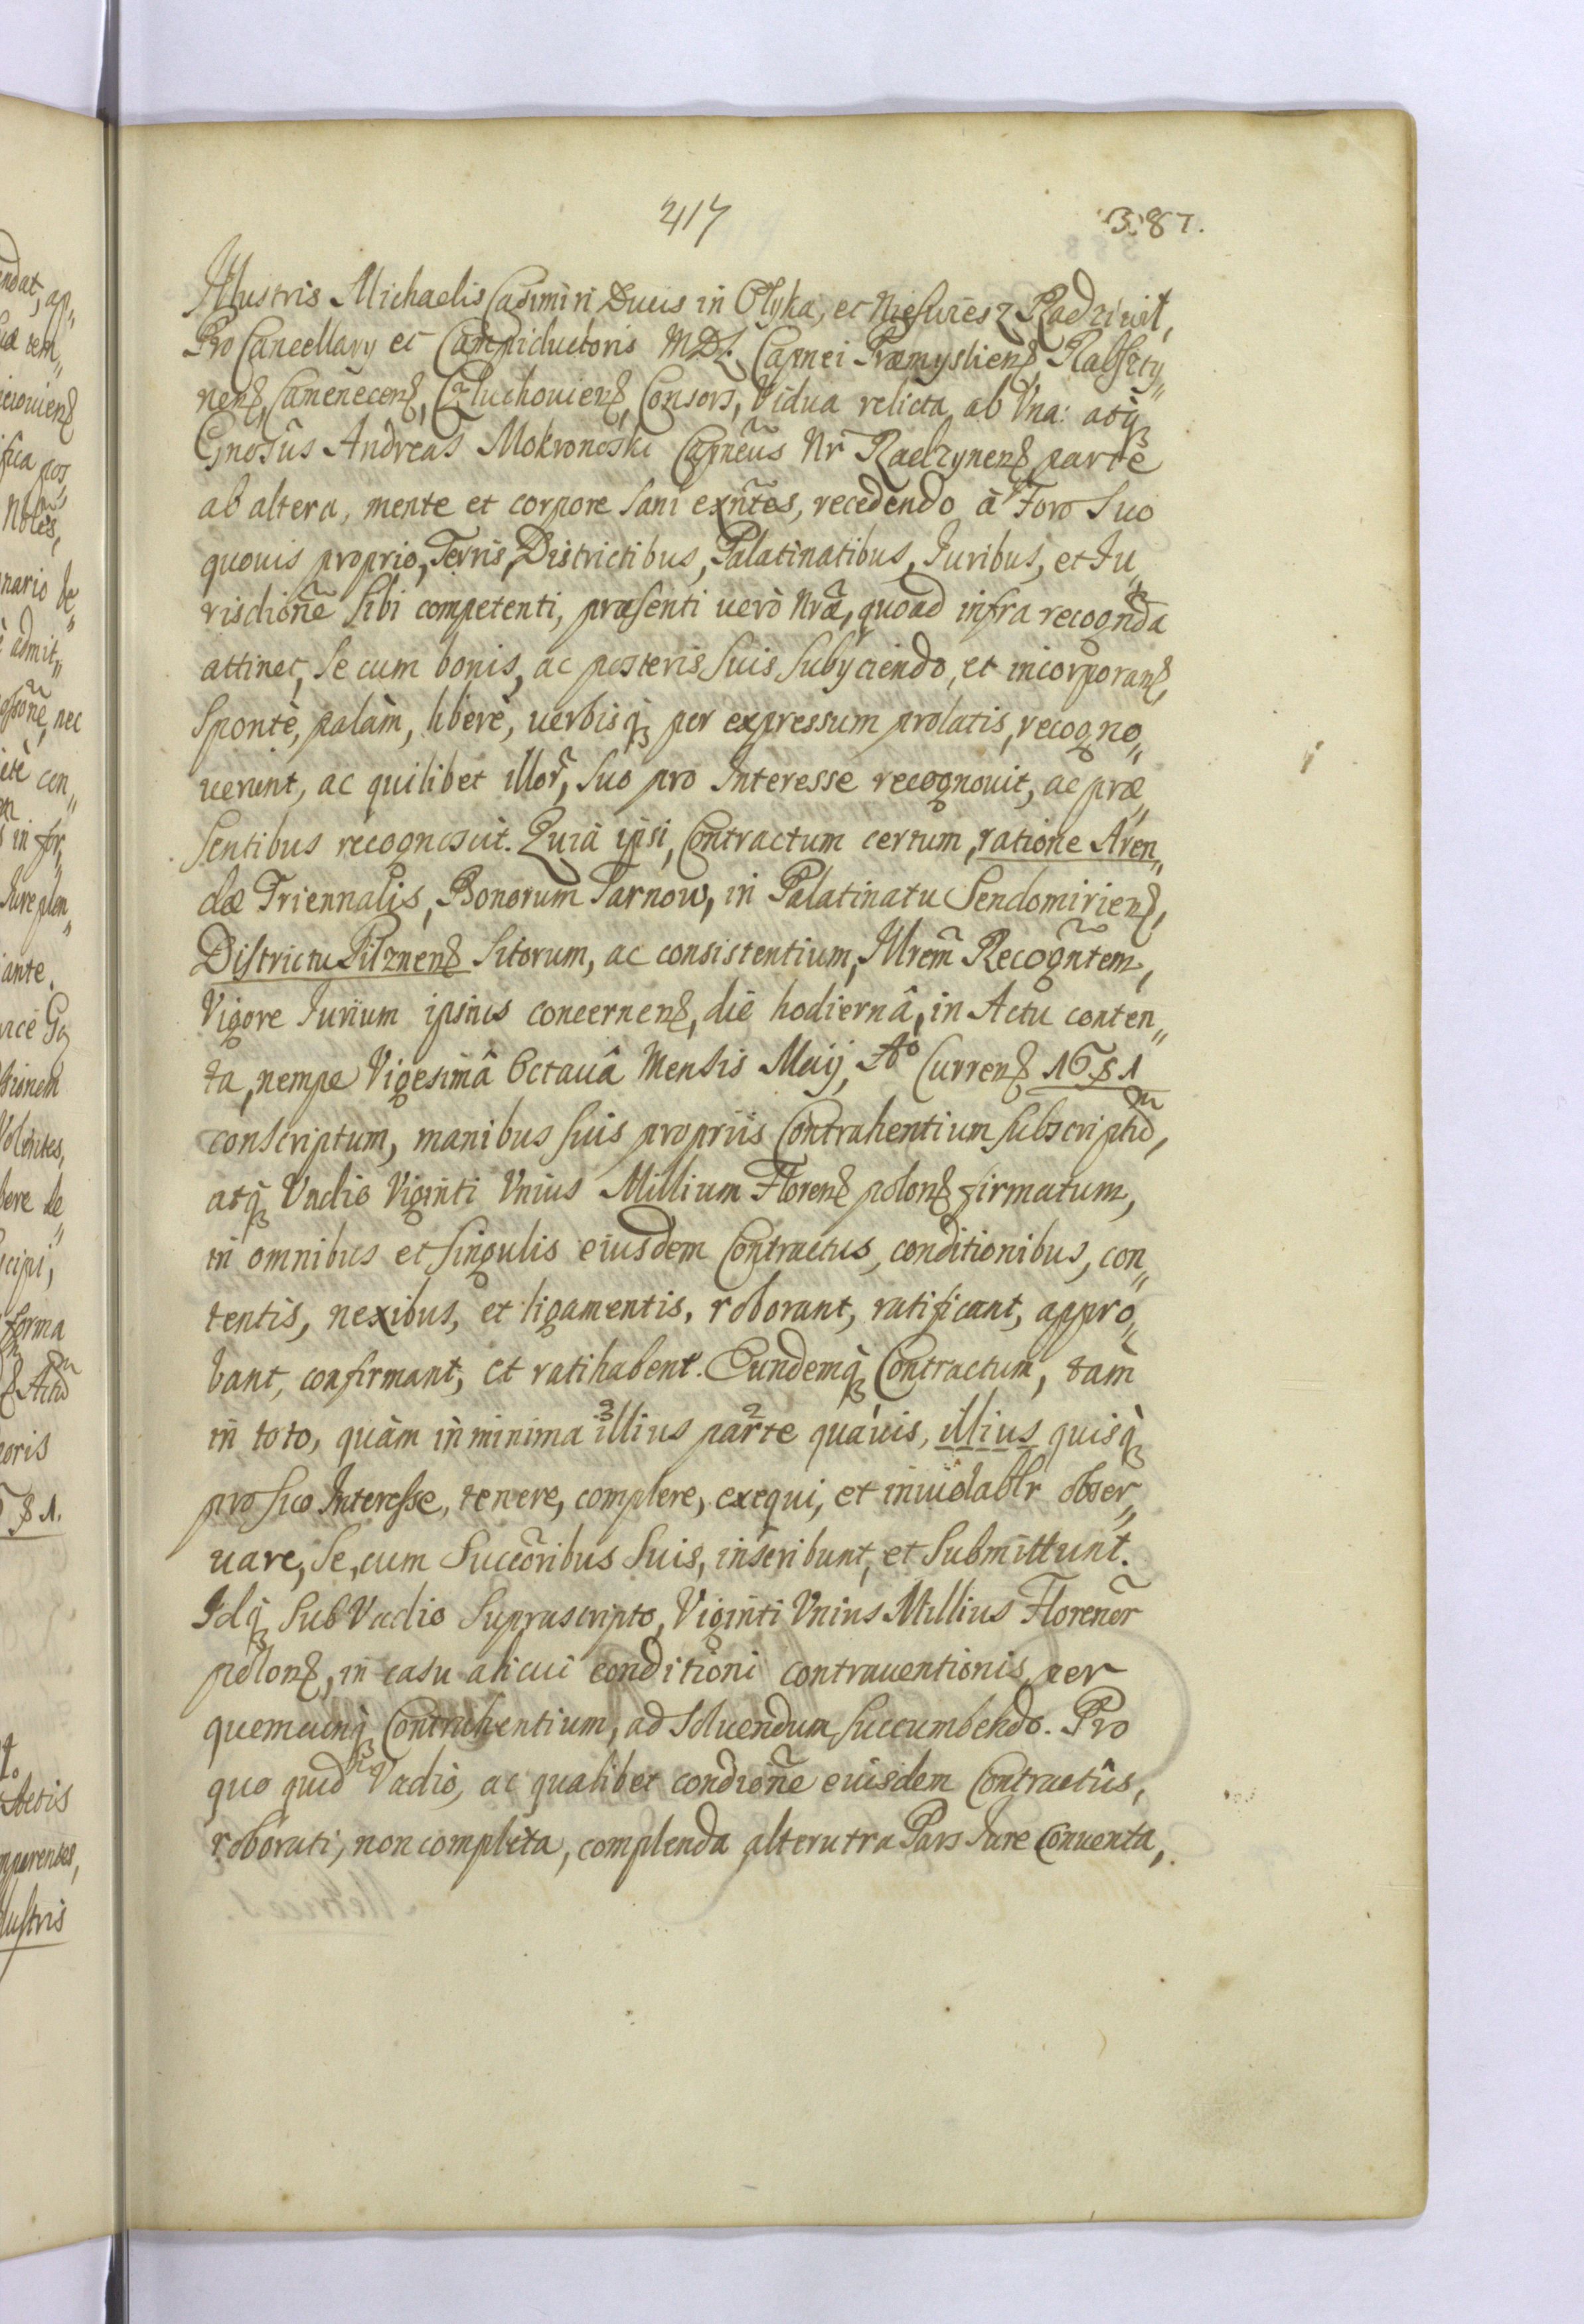 417
387.
Illustris Michaelis Casimiri Ducis in Olyka, et Nieswiesz Radziwił,
Pro Cancellarij et Campiductoris MDL. Capnei Præmyslien̄, Rabszty„
nen̄, Camenecen̄, Człuchouien̄, Consors, Vidua relicta, ab Vna: atq̨
Gnosus Andreas Mokronoski Capneus Nr̃ Radzynen̄, parte
ab altera, mente et corpore sani exñtes, recedendo à Foro Suo
quouis proprio, Terris, Districtibus, Palatinatibus, Iuribus, et Iu„
risdictioñe sibi competenti, præsenti uerò Nrã, quoad infra recogñda
attinet, se cum bonis, ac posteris suis subyciendo, et incorporan̄,
Spontè, palàm, liberè, uerbisq̨ per expressum prolatis, recogno„
uerunt, ac quilibet illor̃, suo pro Interesse recognouit, ac præ„
sentibus recognoscit. Quià ipsi, Contractum certum, ratione Aren„
dæ Triennalis, Bonorum Tarnow, in Palatinatu Sendomirien̄,
Districtu Pilznen̄ sitorum, ac consistentium, Illrem̃ Recogñtem,
Vigore Iurium ipsius concernen̄, die hodiernâ, in Actu conten„
ta, nempe Vigesimâ Octauâ Mensis Maij, Aº Curren̄ 1681
conscriptum, manibus suis propriis Contrahentium subscriptũ,
atq̨ Vadio Viginti Vnius Millium Floren̄ polon̄ firmatum,
in omnibus et singulis eiusdem Contractus, conditionibus, con„
tentis, nexibus, et ligamentis, roborant, ratificant, appro„
bant, confirmant, et ratihabent. Eundemq̨ Contractum, tam̀
in toto, quàm in minima ³illius par²te quáuis, illius quisq̨
pro suo Interesse, tenere, complere, exequi, et inuiolablr obser„
uare, se, cum Succõribus Suis, inscribunt, et submittunt.
Idq̨ sub Vadio Suprascripto, Viginti Vnius Millius Florenor̃
polon̄, in casu alicui conditioni contrauentionis, per
quemcunq̨ Contrahentium, ad soluendum succumbendo. Pro
quo quid̃ Vadio, ac qualibet condrioñe euisdem Contractûs,
roborati, non completa, complenda alterutra Pars Iure Conuenta,